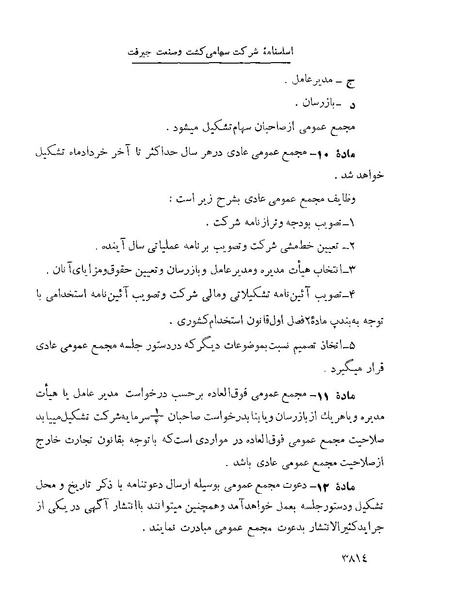 اساسنامهٔ شرکت سهامی کشت وصنعت جیرفت
ج - مدیرعامل .
د - بازرسان .
مجمع عمومی ازصاحبان سهام تشکیل میشود .
مادهٔ ۱۰- مجمع عمومی عادی درهر سال حداکثر تا آخر خردادماه تشکیل
خواهد شد .
وظایف مجمع عمومی عادی بشرح زیر است :
۱- تصویب بودجه وترازنامه شرکت .
۲- تعیین خط‌مشی شرکت وتصویب برنامه عملیاتی سال آینده .
۳- انتخاب هیأت مدیره ومدیرعامل وبازرسان وتعیین حقوق ومزایای آنان .
۴- تصویب آئین‌نامه تشکیلاتی ومالی شرکت وتصویب آئین‌نامه استخدامی با
توجه به‌بندپ مادهٔ۲فصل اول قانون استخدام کشوری .
۵- اتخاذ تصمیم نسبت بموضوعات دیگر که دردستور جلسه مجمع عمومی عادی
قرار میگیرد .
مادهٔ ۱۱- مجمع عمومی فوق‌العاده برحسب درخواست مدیر عامل یا هیأت
مدیره ویاهریک ازبازرسان ویابنابدرخواست صاحبان سرمایه شرکت تشکیل مییابد
صلاحیت مجمع عمومی فوق‌العاده در مواردی است که باتوجه بقانون تجارت خارج
ازصلاحیت مجمع عمومی عادی باشد .
مادهٔ ۱۲- دعوت مجمع عمومی بوسیله ارسال دعوتنامه با ذکر تاریخ و محل
تشکیل ودستورجلسه بعمل خواهدآمد وهمچنین میتوانند باانتشار آگهی در یکی از
جرایدکثیرالانتشار بدعوت مجمع عمومی مبادرت نمایند .
۳۸۱۴